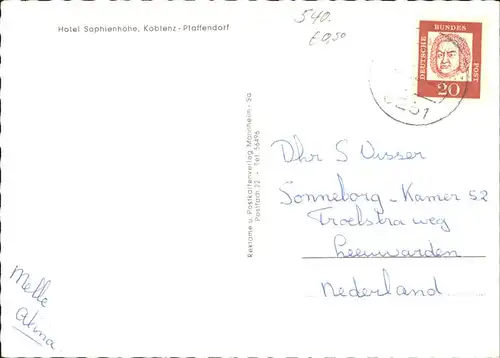 Hotel Sophienhöhe, Koblenz - Pfaffendorf
540.
€0,50
DEUTSCHE BUNDES POST
20
Reklame u. Postkartenverlag Mannheim - Sa.
Postfach 22 - Tel 56496
Dhr S Visser
Sonneborg - Kamer 52
Troelstra weg
Leeuwarden
Nederland
Melle
Atma